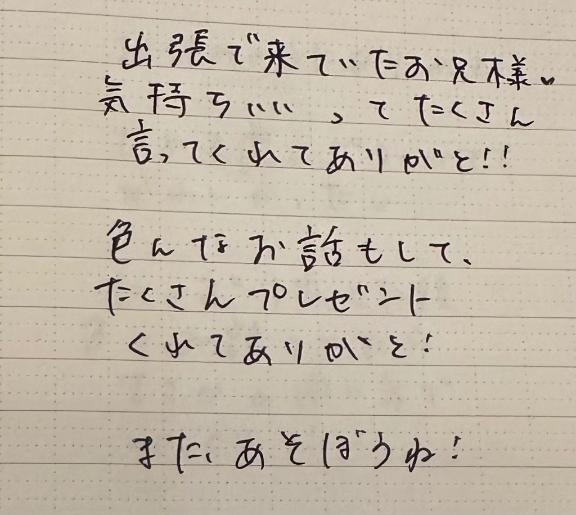 出張で来ていたお兄様。
気持ちいい、ってたくさん
言ってくれてありがと!!
色んなお話もして、
たくさんプレゼント
くれてありがと!
また、あそぼうね!